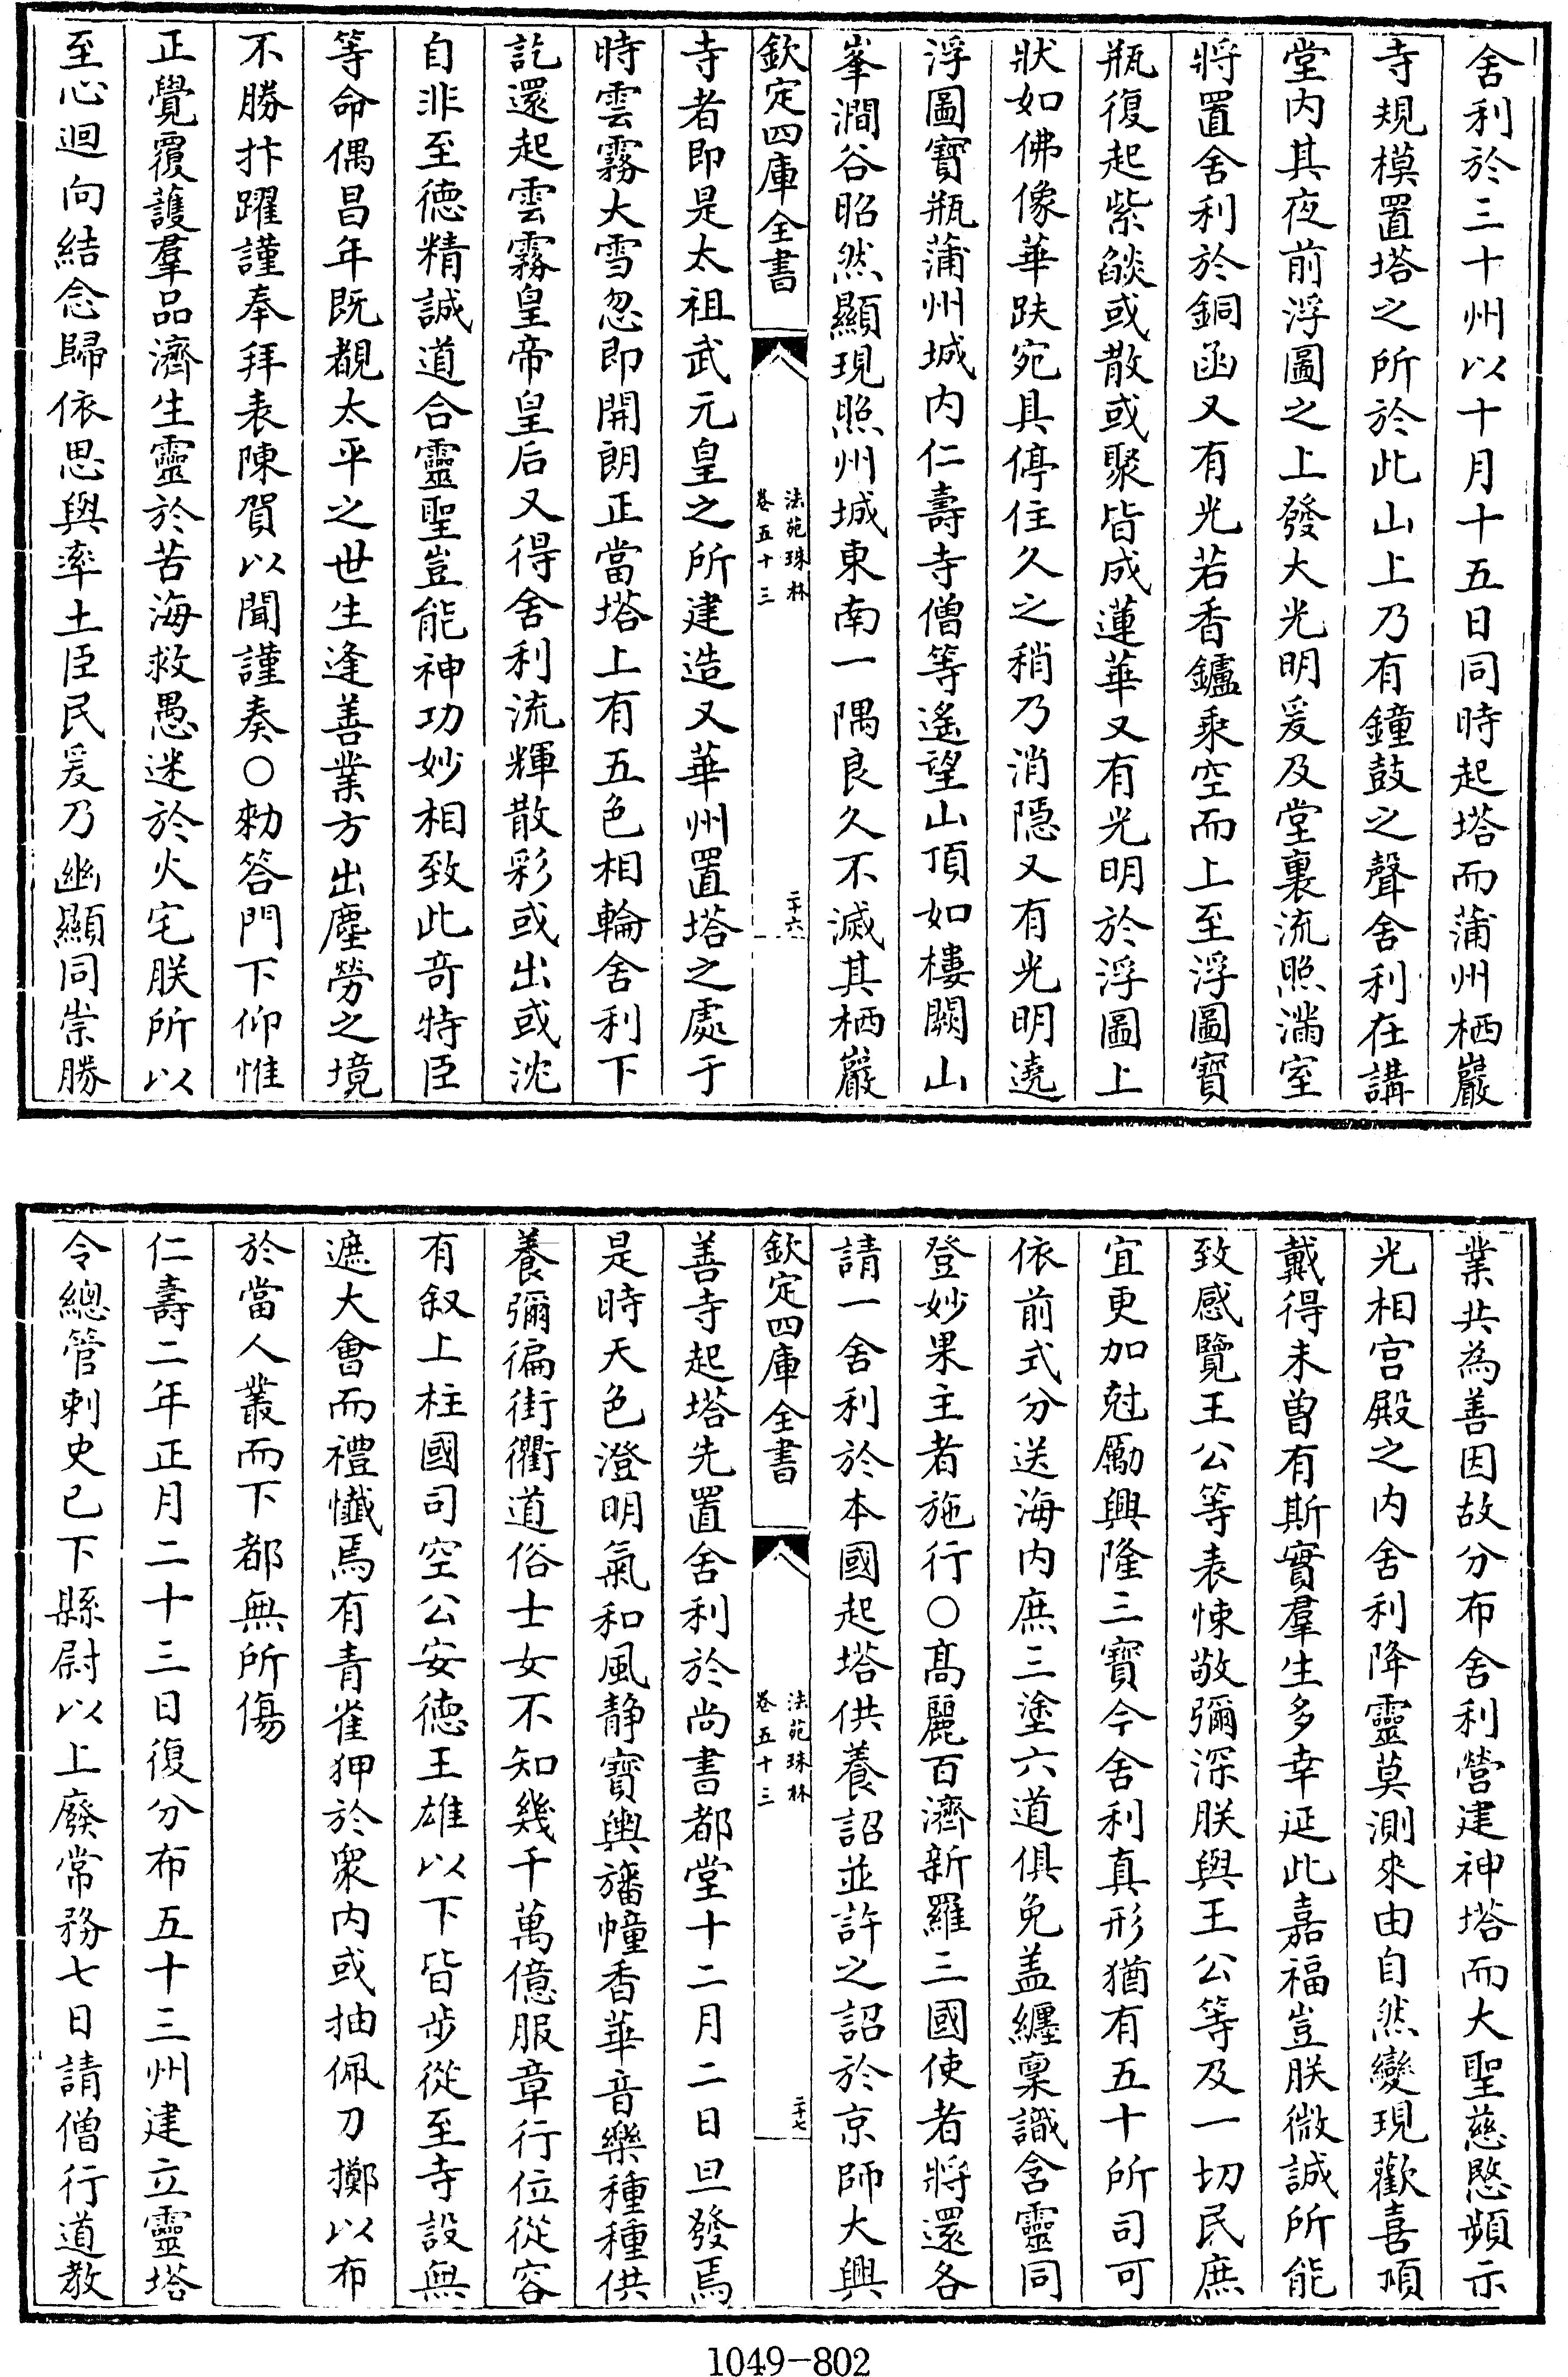 舍利於三十州以十月十五日同時起塔而蒲州栖巖
寺規模置塔之所於此山上乃有鐘鼓之聲舍利在講
堂内其夜前浮圖之上發大光明爰及堂裏流照滿室
將置舍利於銅函又有光若香鑪乘空而上至浮圖寶
瓶復起紫燄或散或聚皆成蓮華又有光明於浮圖上
狀如佛像華趺宛具停住久之稍乃消隠又有光明遶
浮圖寶瓶蒲州城内仁壽寺僧等遙望山頂如樓闕山
峯澗谷昭然顯現照州城東南一隅良久不滅其栖巖
欽定四庫全書
法苑珠林
卷五十三
二十六
寺者即是太祖武元皇之所建造又華州置塔之處于
時雲霧大雪忽即開朗正當塔上有五色相輪舍利下
訖還起雲霧皇帝皇后又得舍利流輝散彩或出或沈
自非至徳精誠道合靈聖豈能神功妙相致此奇特臣
等命偶昌年既覩太平之世生逢善業方出塵勞之境
不勝抃躍謹奉拜表陳賀以聞謹奏〇勑答門下仰惟
正覺覆護羣品濟生靈於苦海救愚迷於火宅朕所以
至心迴向結念歸依思與率土臣民爰乃幽顯同崇勝
業共為善因故分布舍利營建神塔而大聖慈愍頻示
光相宫殿之内舍利降靈莫測來由自然變現歡喜頂
戴得未曽有斯實羣生多幸延此嘉福豈朕微誠所能
致感覽王公等表悚敬彌深朕與王公等及一切民庶
宜更加尅勵興隆三寶今舍利真形猶有五十所司可
依前式分送海内庶三塗六道俱免盖纏稟識含靈同
登妙果主者施行〇髙麗百濟新羅三國使者將還各
請一舍利於本國起塔供養詔並許之詔於京師大興
欽定四庫全書
法苑珠林
卷五十三
二十七
善寺起塔先置舍利於尚書都堂十二月二日旦發焉
是時天色澄明氣和風静寶輿旛幢香華音樂種種供
養彌徧街衢道俗士女不知幾千萬億服章行位從容
有叙上柱國司空公安徳王雄以下皆步從至寺設無
遮大會而禮懺焉有青雀狎於衆内或抽佩刀擲以布
於當人叢而下都無所傷
仁壽二年正月二十三日復分布五十三州建立靈塔
令總管刺史已下縣尉以上廢常務七日請僧行道教
1049-802